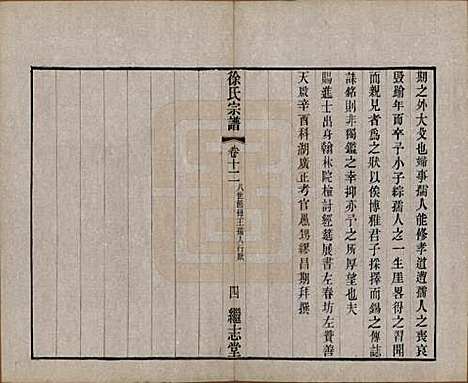 期之外大歿也婦事孺人能修孝道遭孺人之喪哀
毀踰年而卒予小子綜孺人之一生崖畧得之習聞
而親見者爲之狀以俟博雅君子採擇而錫之傳誌
誄銘則非獨鑑之幸抑亦予之所厚望也夫
賜進士出身翰林院檢討經筵展書左春坊左贊善
天啟辛酉科湖廣正考官愚甥繆昌期拜撰
徐氏宗譜
卷十二
八世
王孺人行狀
四
繼志堂